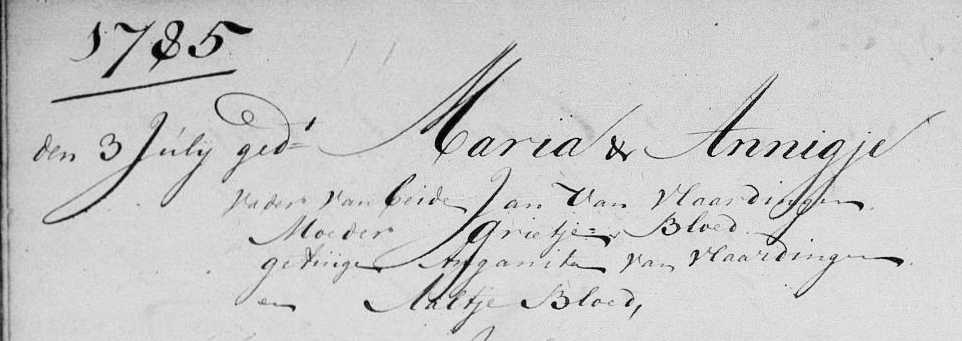 1785
den 3 July ged:t Maria & Annigje
vader van beide Jan Van Vlaardingen.
Moeder grietje Bloed.
getuige van Vlaardingen.
en Aaltje Bloed,